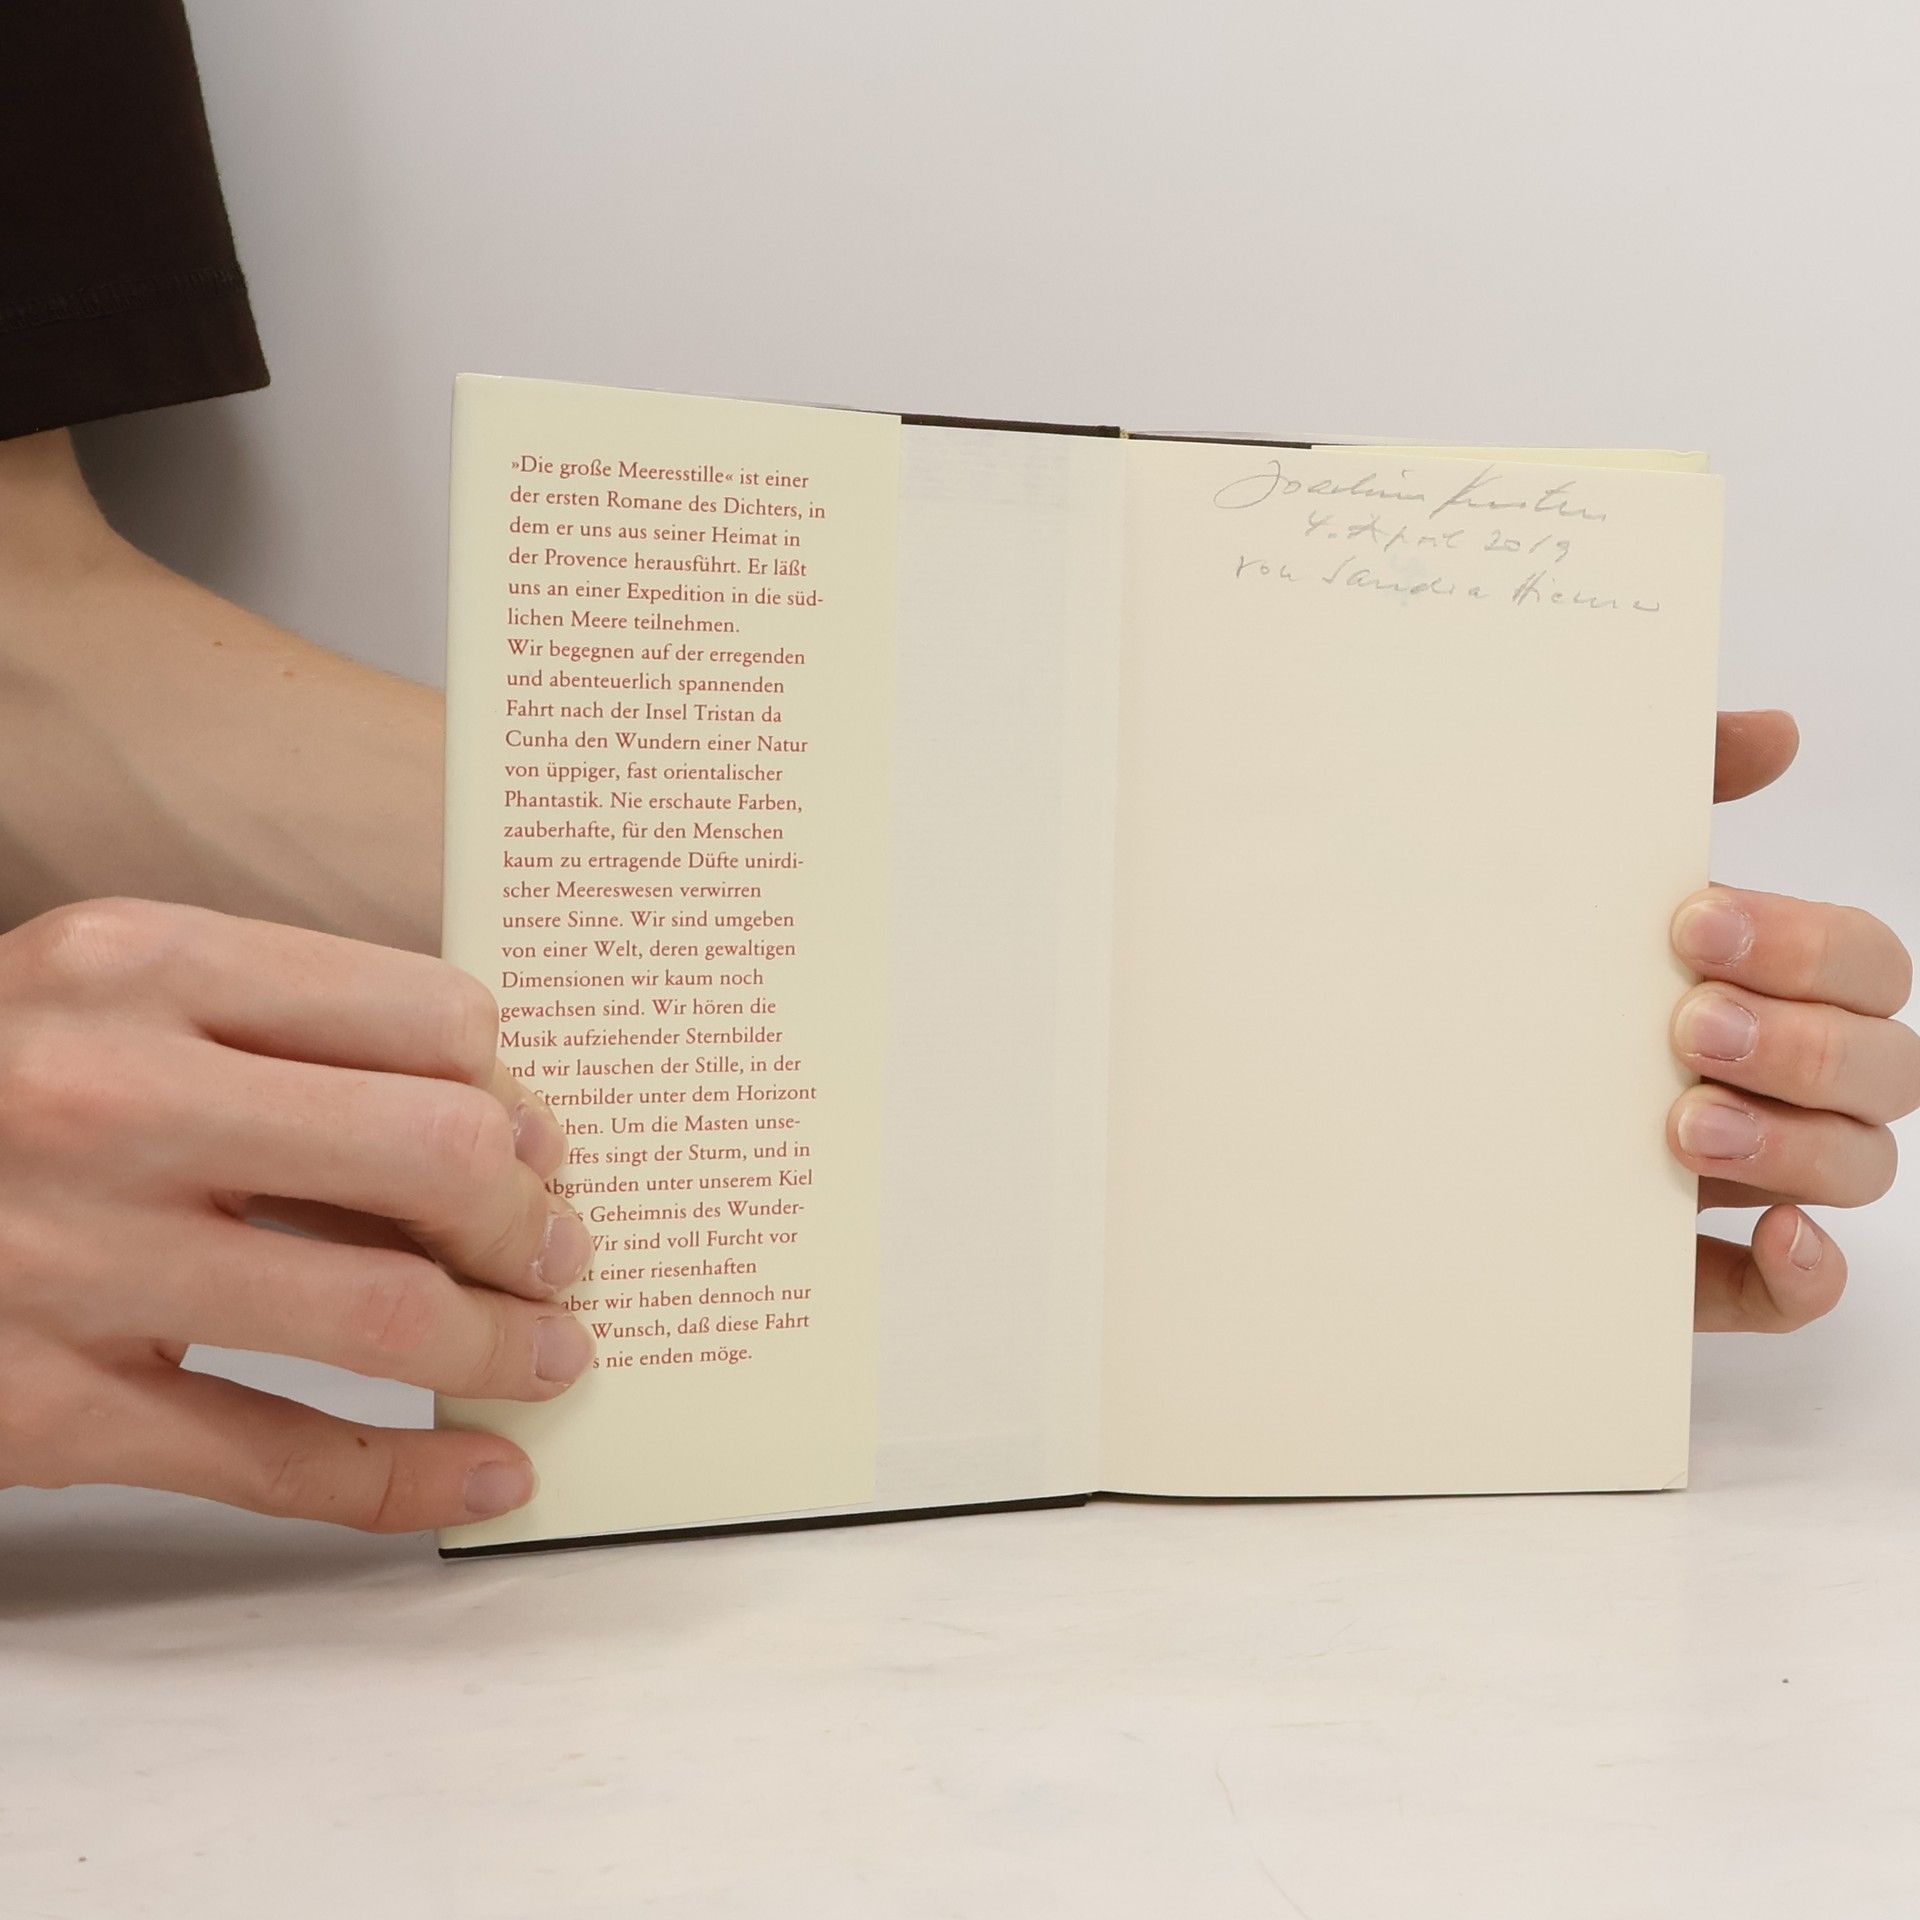 »Die große Meeresstille« ist einer
der ersten Romane des Dichters, in
dem er uns aus seiner Heimat in
der Provence herausführt. Er läßt
uns an einer Expedition in die süd-
lichen Meere teilnehmen.
Wir begegnen auf der erregenden
und abenteuerlich spannenden
Fahrt nach der Insel Tristan da
Cunha den Wundern einer Natur
von üppiger, fast orientalischer
Phantastik. Nie erschaute Farben,
zauberhafte, für den Menschen
kaum zu ertragende Düfte unirdi-
scher Meereswesen verwirren
unsere Sinne. Wir sind umgeben
von einer Welt, deren gewaltigen
Dimensionen wir kaum noch
gewachsen sind. Wir hören die
Musik aufziehender Sternbilder
und wir lauschen der Stille, in der
Sternbilder unter dem Horizont
chen. Um die Masten unse-
ffes singt der Sturm, und in
Abgründen unter unserem Kiel
s Geheimnis des Wunder-
Wir sind voll Furcht vor
t einer riesenhaften
aber wir haben dennoch nur
Wunsch, daß diese Fahrt
s nie enden möge.
Joachim
4. April 2019
von Sandra